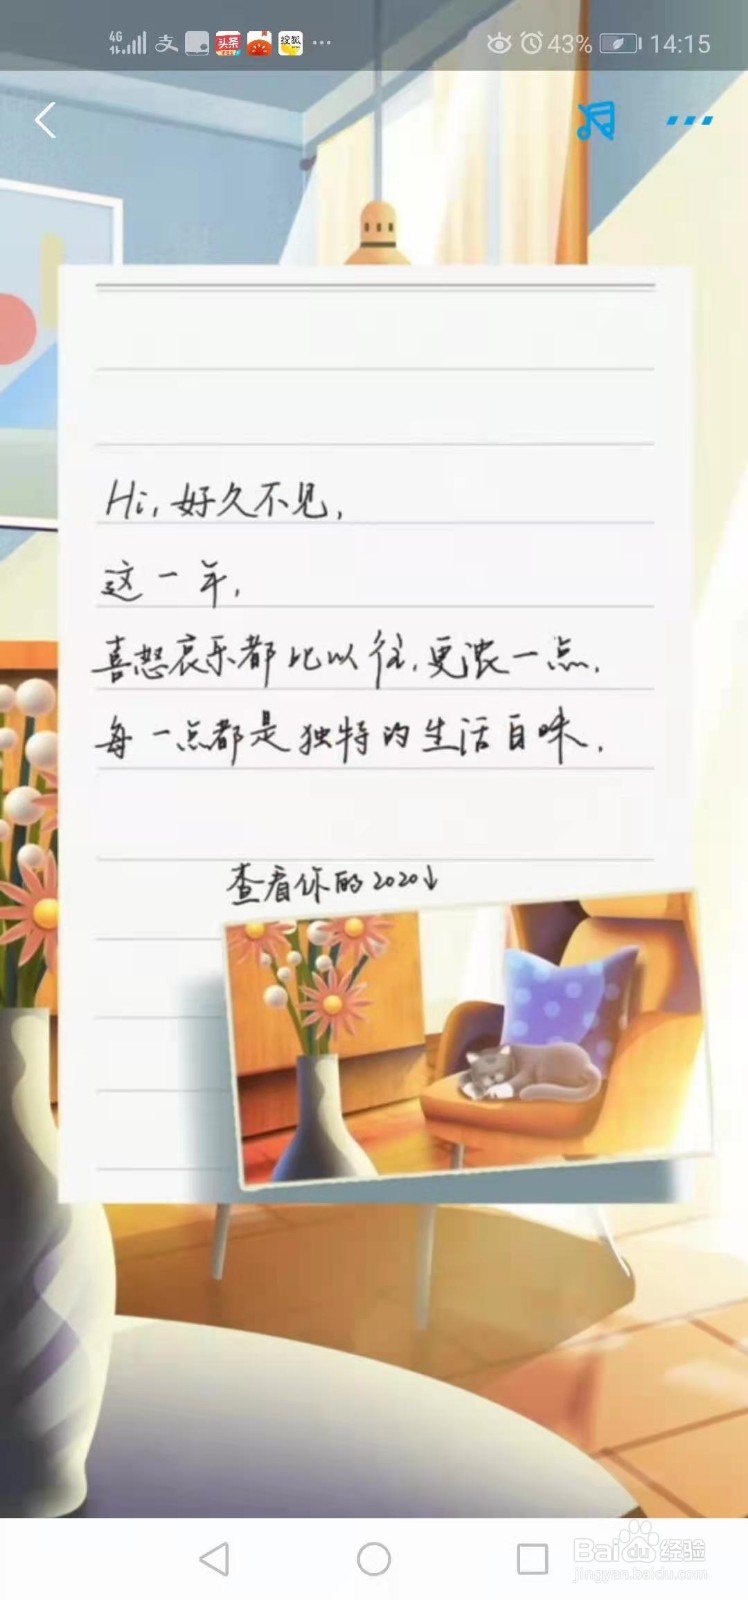 4G
支
头条
搜狐
43%
14:15
Hi,好久不见,
这一年,
喜怒哀乐都比以往,更浓一点.
每一点都是独特的生活百味.
查看你的2020↓
Baidu经验
jingyan.baidu.com